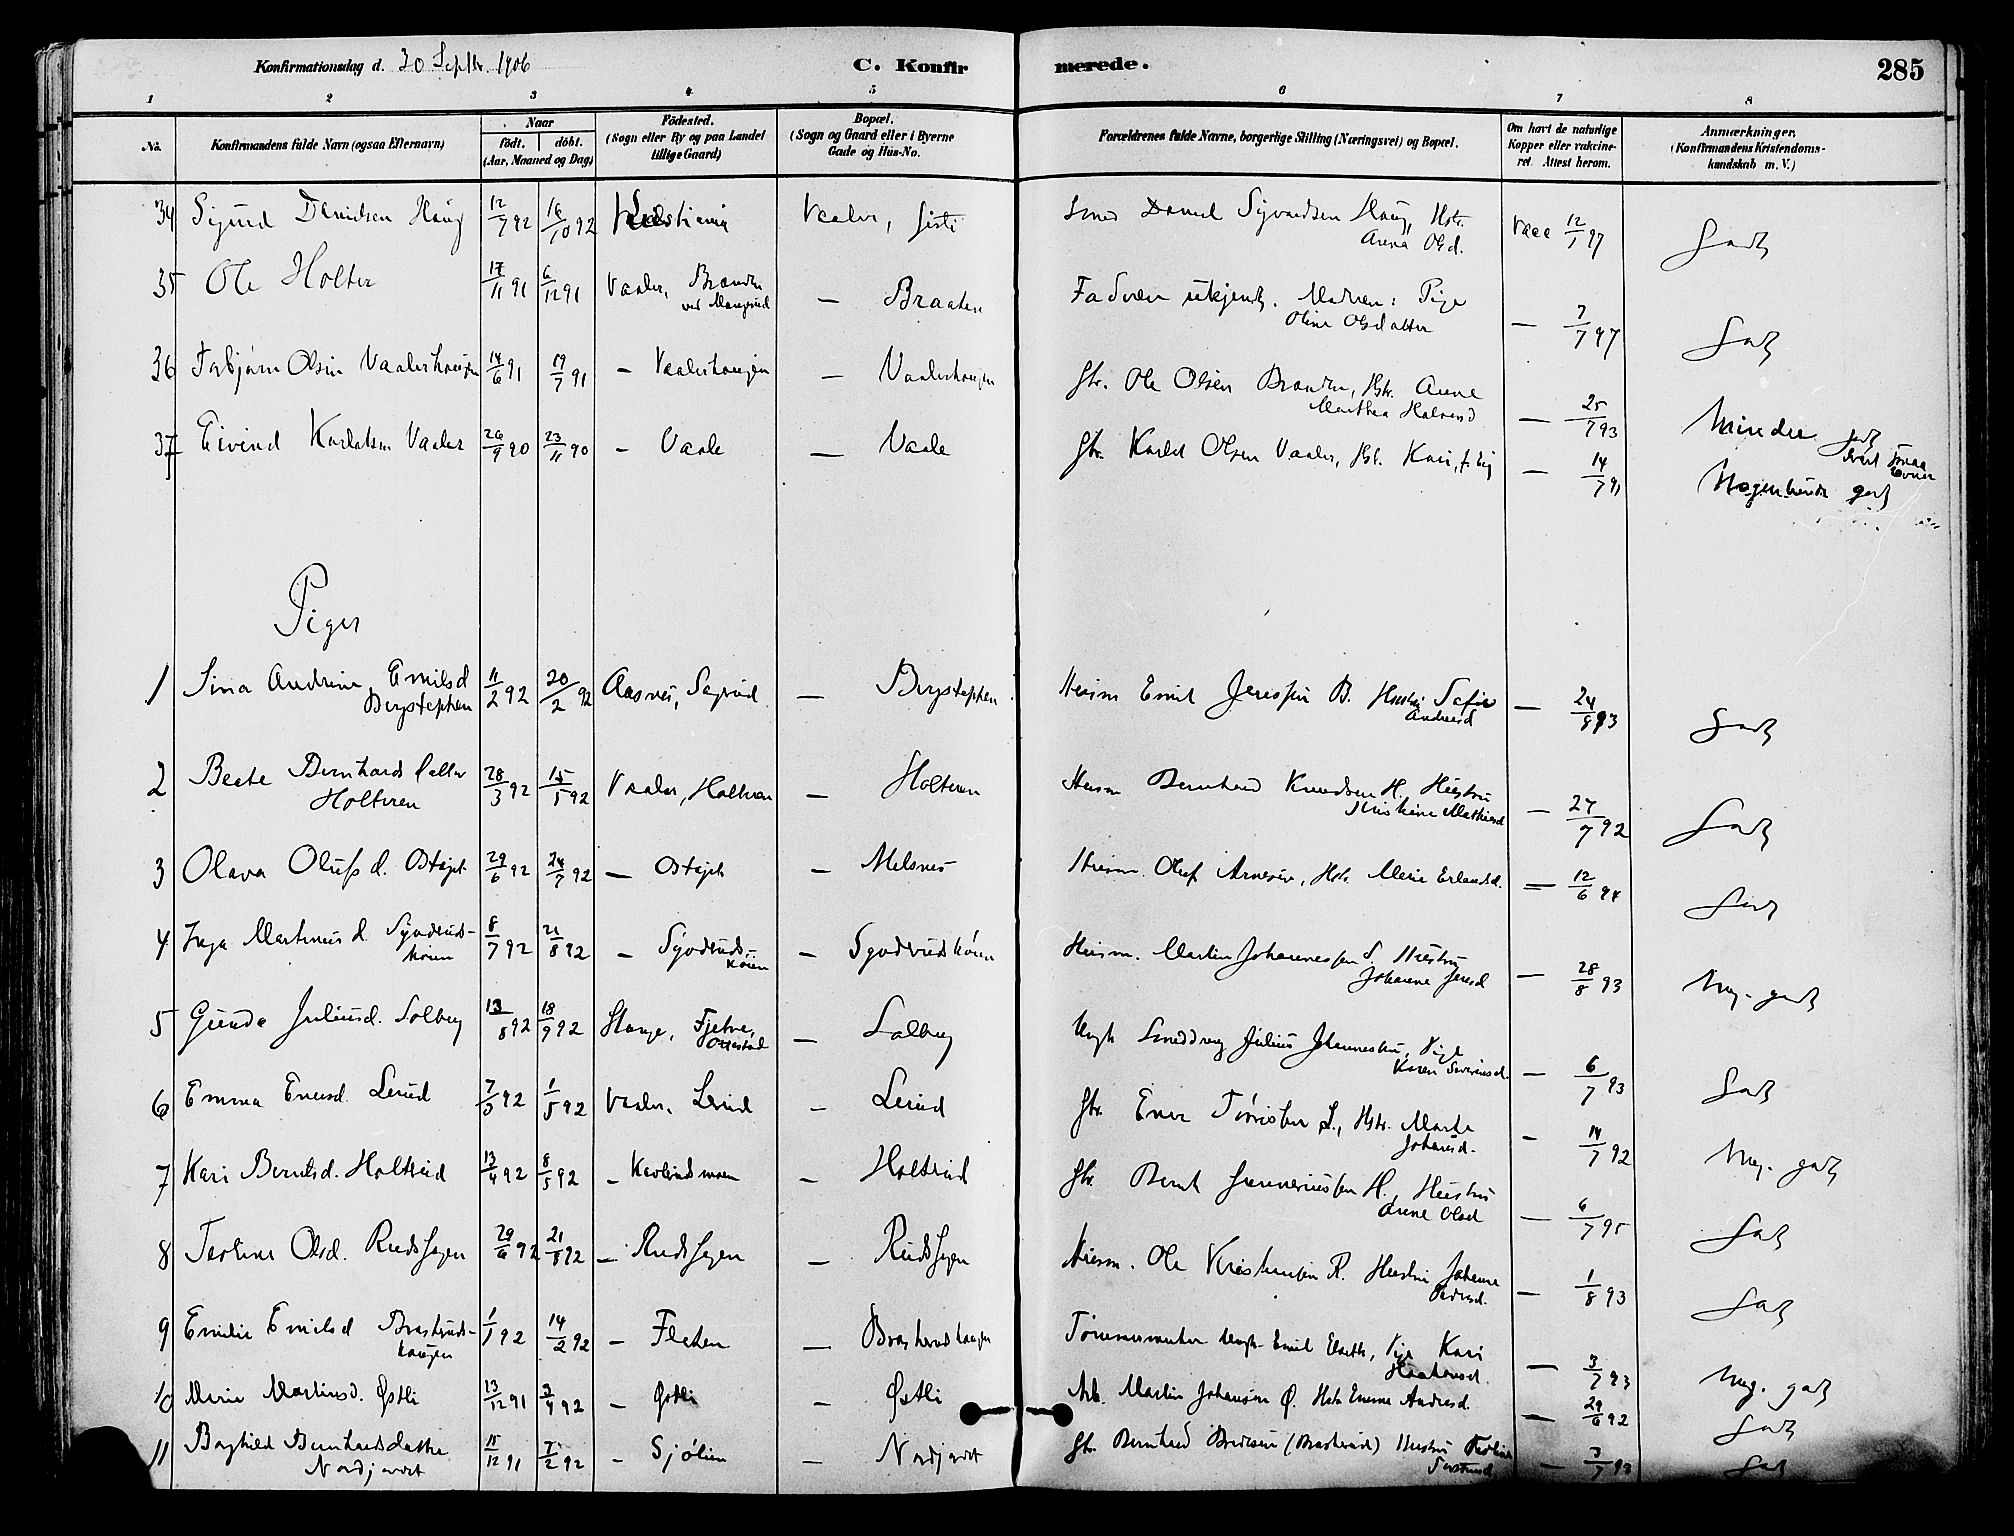 Konfirmationsdag d. 30 Septbr. 1906
C. Konfirmerede.
285
1 2 3 4 5 6 7 8
No. Konfirmandens fulde Navn (ogsaa Efternavn) Naar födt. döbt. (Aar, Maaned og Dag) Födested. (Sogn eller By og paa Landet tillige Gaard) Bopæl. (Sogn og Gaard eller i Byerne Gade og Hus-No. Forældrenes fulde Navne, borgerlige Stilling (Næringsvei) og Bopæl. Om havt de naturlige Kopper eller vakcineret. Attest herom. Anmærkninger. (Konfirmandens Kristendomskundskab m. V.)
34 Sigurd Danielsen Haug 12/7 92 16/10 92 Kristiania Vaaler, Daniel Sigvardsen Haug, Hstr. Anna Olsd. Vacc 12/1 97 Godt
35 Ole Holter 17/11 91 6/12 91 Vaaler, Braaten — Braaten Faderen ukjendt. Moderen: Pige Oline Olsdatter — 7/7 97 Godt
36 Torbjörn Olsen Vaalerhaugen 14/6 91 19/7 91 — Vaalerhaugen — Vaalerhaugen Gbr. Ole Olsen Braaten, Hstr. Anne Marthea Halvorsd — 25/7 93 Mindre godt
37 Eivind Karlsen Vaaler 26/9 90 23/11 90 — Vaale — Vaale Gbr. Olsen Vaaler, Kari — 14/7 91 Nogenlunde godt
Piger
1 Sina Andrine Emilsd Bergstephen 11/2 92 20/2 92 Aasnes, — Bergstephen Husm Emil Jensen B. Hustru Sofie Andreasd — 24/8 93 Godt
2 Beate Bernhardsdatter Holteren 28/3 92 15/5 92 Vaaler, Holteren — Holteren Husm Bernhard Knudsen H. Hustru Kristine Mathiesd — 27/7 92 Godt
3 Olava Olufsd. 29/6 92 24/7 92 — — Melsnes Husm. Oluf Arnesen, Hstr. Marie Erlandsd. — 12/6 94 Godt
4 Inga Martinusd. 8/7 92 21/8 92 — — Husm. Martin Johannessen S. Hustru Johanne Jensd — 28/8 93 Meg. godt
5 Gunda Juliusd. Solberg 13/8 92 18/9 92 Stange, Fjetre, Ottestad — Solberg Ungk Smeddreng Julius Johannessen, Pige Karen Severinsd. — 6/7 93 Godt
6 Emma Enersd. Lerud 7/3 92 1/5 92 Vaaler, Lerud — Lerud Gbr. Ener L., Hstr. Marte Johansd. — 14/7 92 Meg. godt
7 Kari Berntsd. Holterud 13/4 92 8/5 92 — — Holterud Gbr. Bernt H., Hustru Anne Olsd — 6/7 95 Godt
8 Olsd. Rudshagen 29/6 92 21/8 92 — Rudshagen — Rudshagen Husm. Ole Kristiansen R. Hustru Johanne Pedersd. — 1/8 93 Godt
9 Emilie Emilsd Braskerudhaugen 1/1 92 14/2 92 — Flaten — Braskerudhaugen Tömmermand Ungk. Emil Pige Kari Haakensd. — 3/7 93 Meg. godt
10 Marie Martinsd. Østli 13/12 91 3/4 92 — Østli — Østli Arb. Martin Johansen Ø. Hstr. Emma Andersd. — 29/6 92 Godt
11 Borghild Bernhardsdatter Nordjordet 15/12 91 7/2 92 — Sjölien — Nordjordet Gbr. Bernhard (Braskerud) Hustru — 3/7 93 Godt